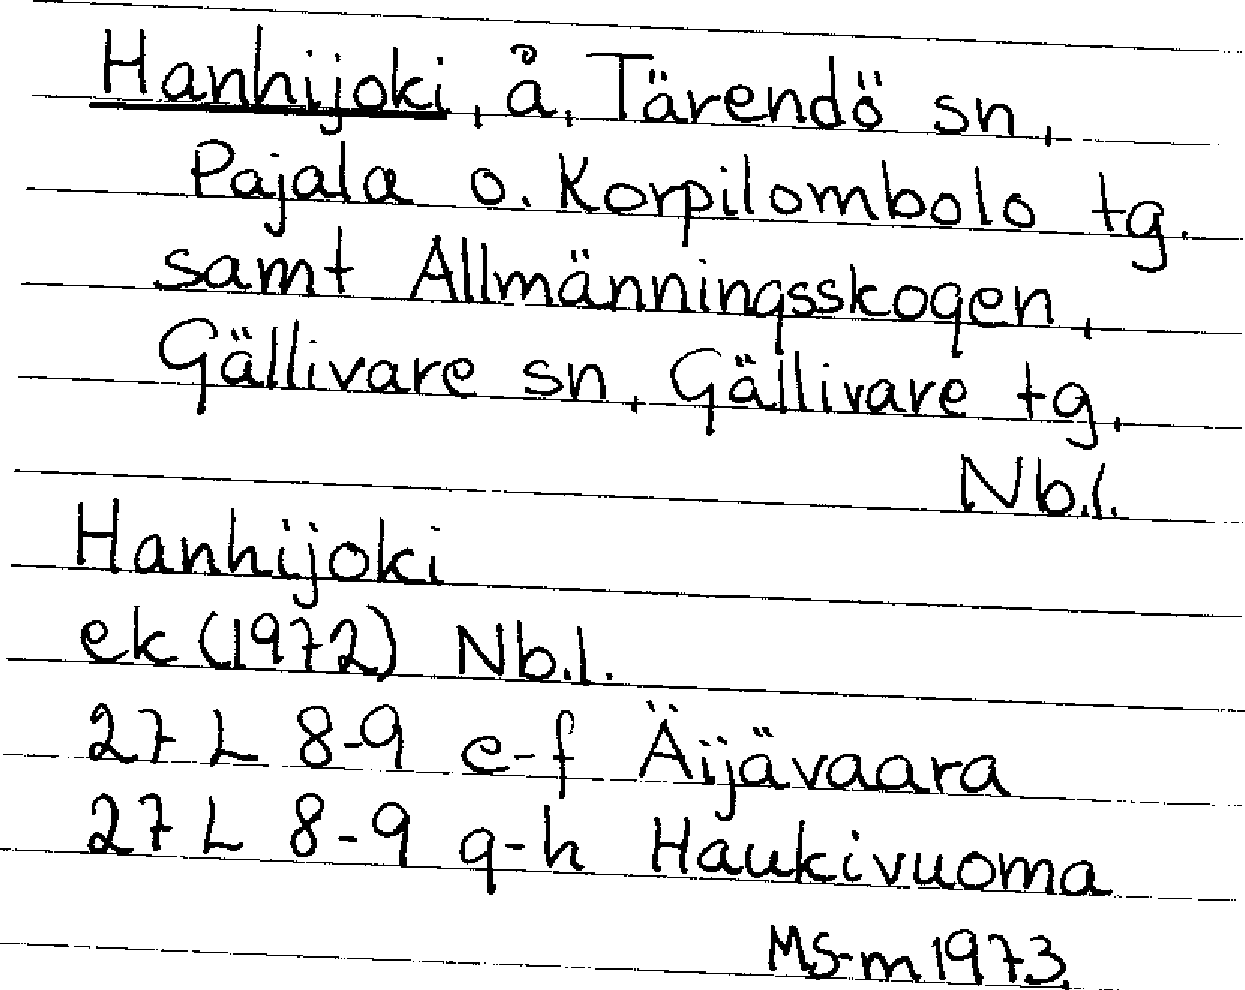 Hanhijoki, å, Tärendö sn,
Pajala o. Korpilombolo tg.
samt Allmänningsskogen,
Gällivare sn, Gällivare tg,
Nb.l.
Hanhijoki
ek (1972) Nb.l.
27 L 8-9 e-f Äijävaara
27 L 8-9 g-h Haukivuoma
MS-m 1973.